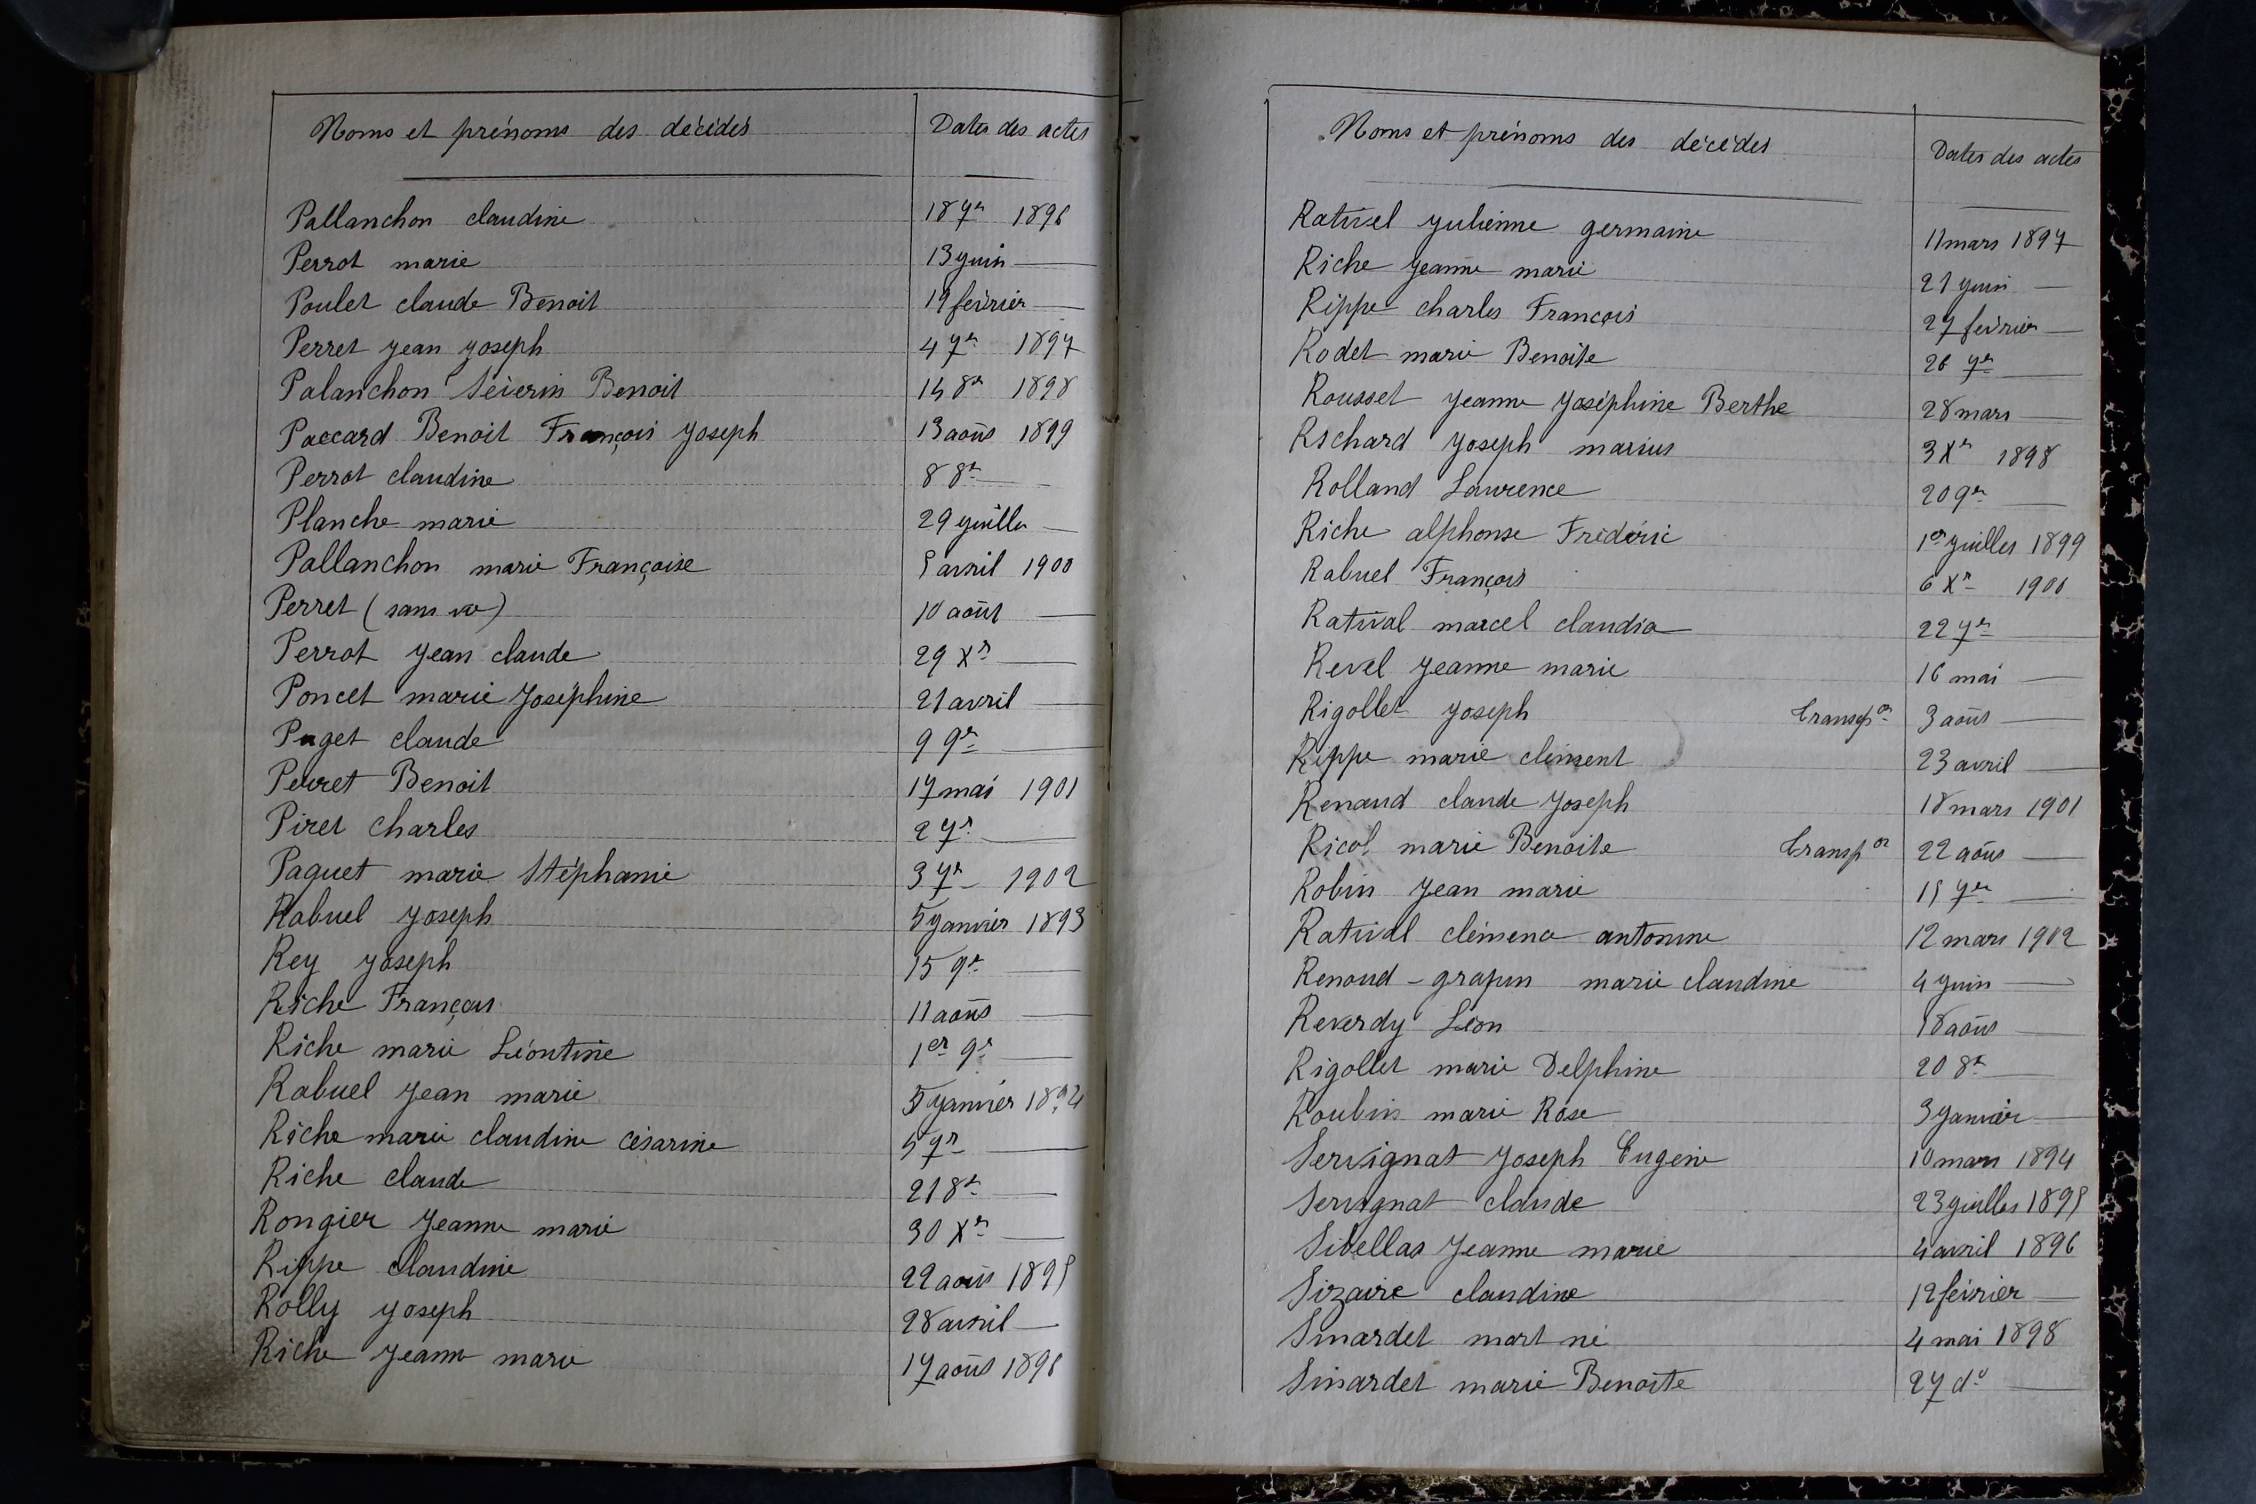 Noms et prénoms des décédés Dates des actes
Pallanchon claudine 18 7re 1896
Perrot marie 13 juin —
Poulet claude Benoit 19 février —
Perret jean joseph 4 7re 1897
Palanchon Séverin Benoit 14 8re 1898
Paccard Benoit François joseph 13 août 1899
Perrot claudine 8 8re —
Planche marie 29 juillet —
Pallanchon marie Françoise 5 avril 1900
Perret (sans vie) 10 août —
Perrot jean claude 29 Xre —
Poncet marie joséphine 21 avril —
Puget claude 9 9re —
Peuret Benoit 17 mai 1901
Piret charles 2 7re —
Paquet marie Stéphanie 3 7re 1902
Rabuel joseph 5 janvier 1893
Rey joseph 15 9re —
Riche François 11 août —
Riche marie Léontine 1er 9re —
Rabuel jean marie 5 janvier 1894
Riche marie claudine césarine 5 7re —
Riche claude 21 8re —
Rongier jeanne marie 30 Xre —
Rippe claudine 22 août 1895
Rolly joseph 28 avril —
Riche jeanne marie 17 août 1896
Noms et prénoms des décédés Dates des actes
Rativel julienne germaine 11 mars 1897
Riche jeanne marie 21 juin —
Rippe charles François 27 février —
Rodet marie Benoite 26 7re —
Rousset jeanne joséphine Berthe 28 mars —
Richard joseph marius 3 Xre 1898
Rolland Laurence 20 9re —
Riche alphonse Frédéric 1er juillet 1899
Rabuel François 6 Xre 1900
Ratival marcel claudia 22 7re —
Revel jeanne marie 16 mai —
Rigollet joseph transpon 3 août —
Rippe marie clément 23 avril —
Renaud claude joseph 18 mars 1901
Ricol marie Benoite transpon 22 août —
Robin jean marie 15 7re —
Ratival clémence antonine 12 mars 1902
Renoud-grapin marie claudine 4 juin —
Reverdy Léon 18 août —
Rigollet marie Delphine 20 8re —
Roubin marie Rose 3 janvier —
Servignat joseph Eugène 10 mars 1894
Servignat claude 23 juillet 1895
Sibellas jeanne marie 4 avril 1896
Sizaire claudine 12 février —
Sinardet mort né 4 mai 1898
Sinardet marie Benoite 27 do —